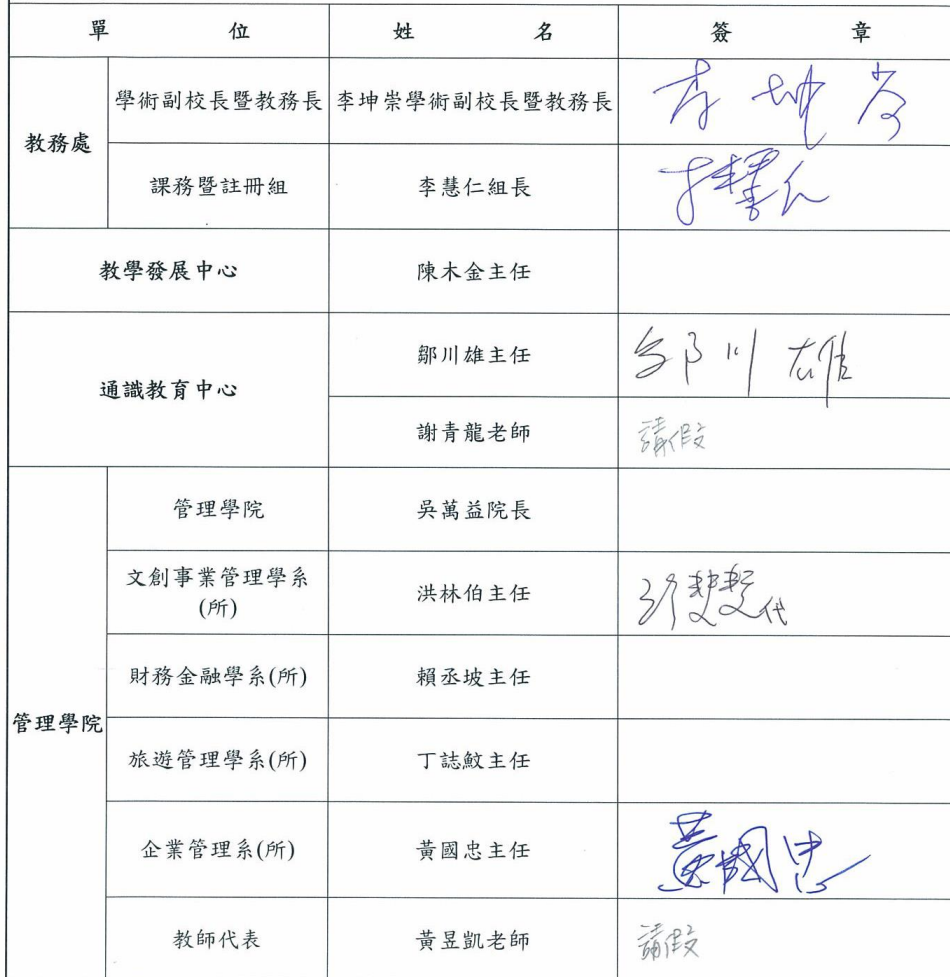 單位 姓名 簽章
教務處
學術副校長暨教務長 李坤崇學術副校長暨教務長 李坤崇
課務暨註冊組 李慧仁組長
教學發展中心 陳木金主任
通識教育中心
鄒川雄主任 鄒川雄
謝青龍老師 請假
管理學院
管理學院 吳萬益院長
文創事業管理學系
(所)
洪林伯主任 代
財務金融學系(所) 賴丞坡主任
旅遊管理學系(所) 丁誌魰主任
企業管理系(所) 黃國忠主任 黃國忠
教師代表 黃昱凱老師 請假